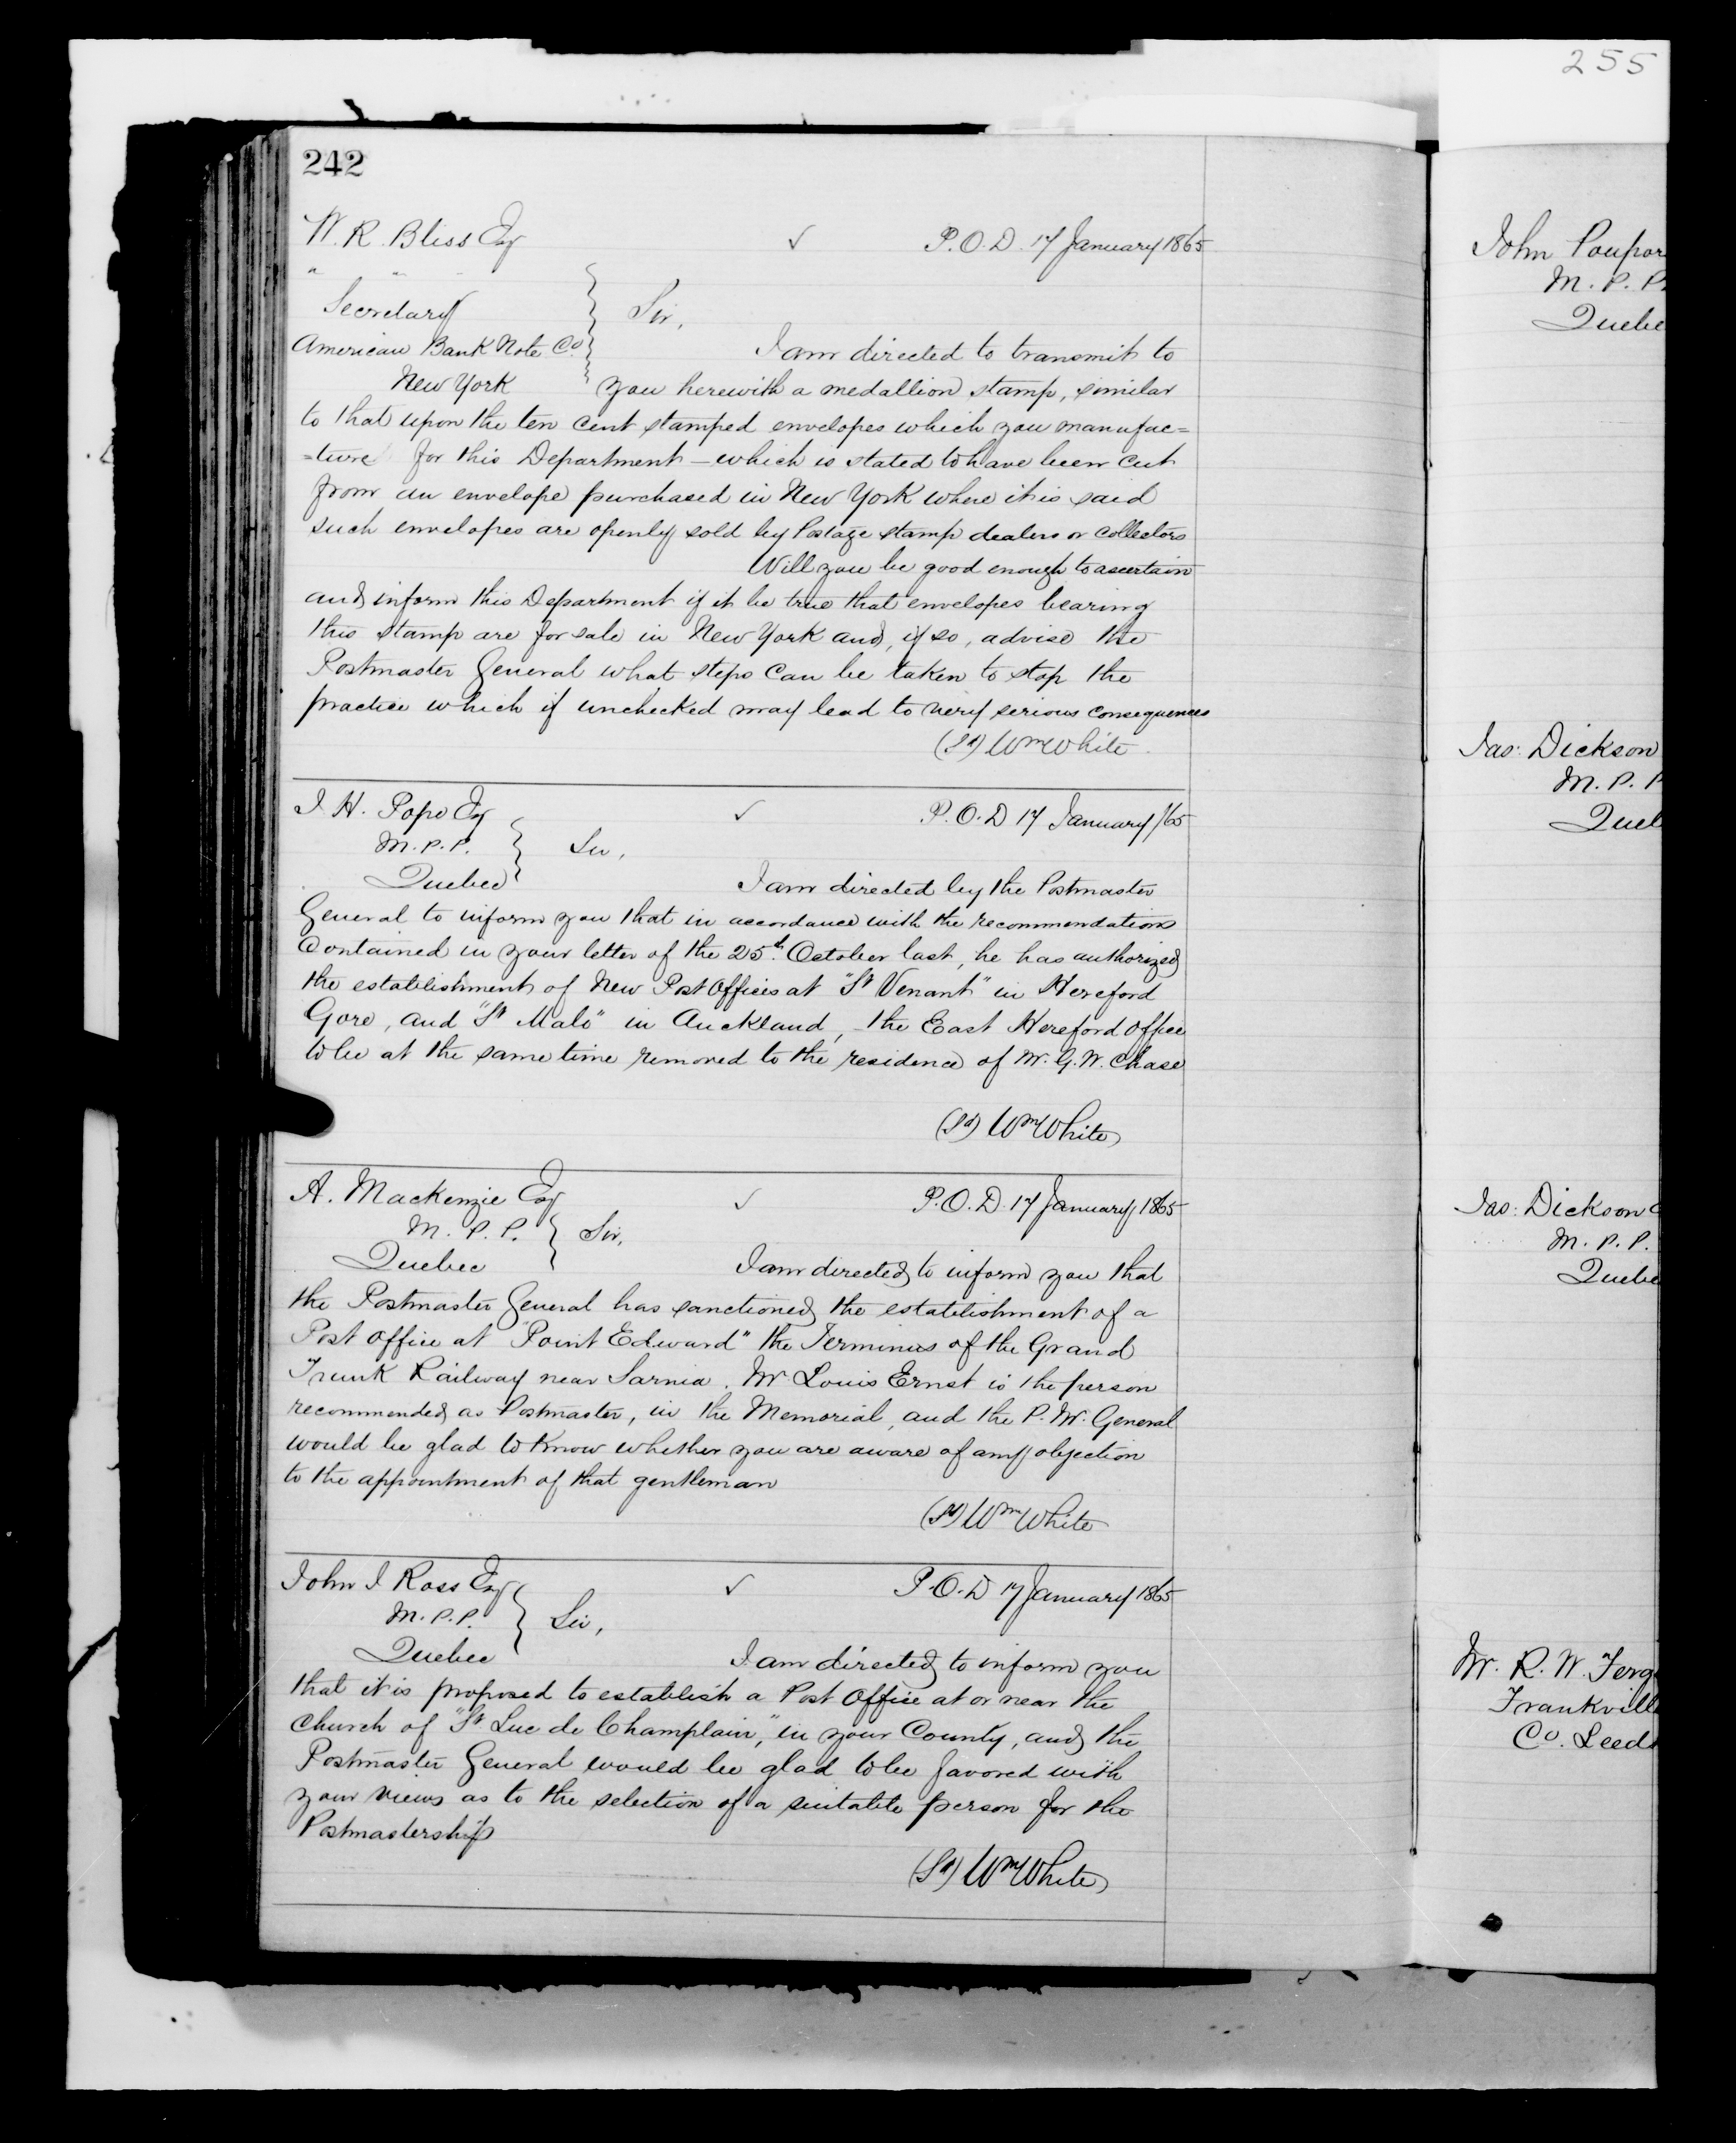 255
242
W. R. Bliss Esq
✓
P.O.D. 17 January 1865
" " "
Secretary
Sir,
American Bank Note Co.
I am directed to transmit to
New York
you herewith a medallion stamp, similar
to that upon the ten cent stamped envelopes which you manufac=
=ture for this Department – which is stated to have been cut
from an envelope purchased in New York where it is said
such envelopes are openly sold by Postage stamp dealers or collectors
Will you be good enough to ascertain
and inform this Department if it be true that envelopes bearing
this stamp are for sale in New York and, if so, advise the
Postmaster General what steps can be taken to stop the
practice which if unchecked may lead to very serious consequences
(Sd) Wm White
J. H. Pope Esq
✓
P.O.D 17 January /65
M.P.P.
Sir,
Quebec
I am directed by the Postmaster
General to inform you that in accordance with the recommendations
contained in your letter of the 25th October last, he has authorized
the establishment of New Post Offices at "St Venant" in Hereford
Gore, and "St Malo" in Auckland, – the East Hereford office
to be at the same time removed to the residence of Mr. G. W. Chase
(Sd) Wm White
A. Mackenzie Esq
✓
P.O.D. 17 January 1865
M.P.P.
Sir,
Quebec
I am directed to inform you that
the Postmaster General has sanctioned the establishment of a
Post Office at "Point Edward" the Terminus of the Grand
Trunk Railway near Sarnia. Mr Louis Ernst is the person
recommended as Postmaster, in the Memorial, and the P. M. General
would be glad to know whether you are aware of any objection
to the appointment of that gentleman
(Sd) Wm White
John J Ross Esq
✓
P.O.D 17 January 1865
M.P.P.
Sir,
Quebec
I am directed to inform you
that it is proposed to establish a Post Office at or near the
church of "St Luc de Champlain," in your County, and the
Postmaster General would be glad to be favored with
your views as to the selection of a suitable person for the
Postmastership
(Sd) Wm White
John Poupor
M.P.P.
Quebe
Jas: Dickson
M.P.P
Queb
Jas: Dickson
M.P.P.
Quebe
Mr. R. W. Ferg
Frankvill
Co. Leeds